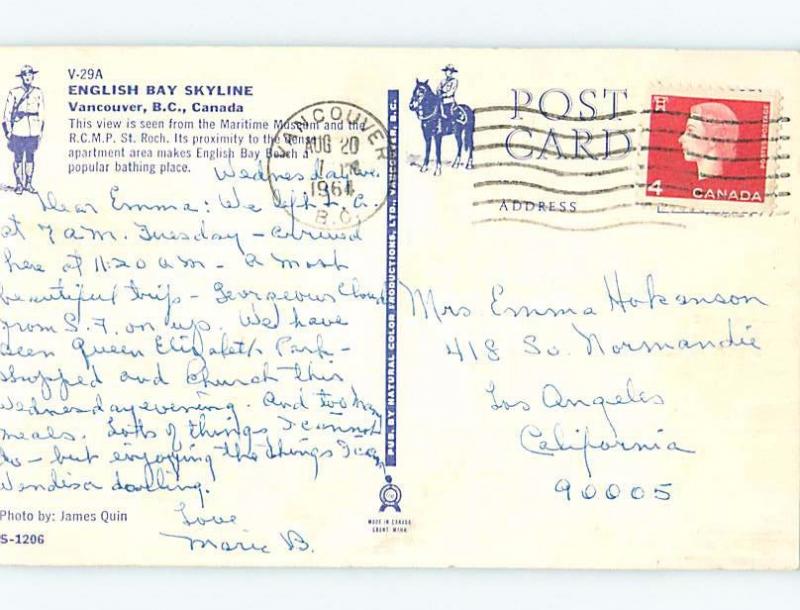 V-29A
ENGLISH BAY SKYLINE
Vancouver, B.C., Canada
This view is seen from the Maritime Museum and the
R.C.M.P. St. Roch. Its proximity to the dense
apartment area makes English Bay Beach a
popular bathing place.
Wednesday eve.
Dear Emma: We left L.A.
at 7 a.m. Tuesday – arrived
here at 11:20 a.m. – a most
beautiful trip – Gorgeous Clouds
from S.F. on up. We have
seen Queen Elizabeth Park –
shopped and Church this
Wednesday evening. And too many
meals. Lots of things I cannot
do – but enjoying the things I can
darling.
Love
Marie B.
Photo by: James Quin
S-1206
PUB. BY NATURAL COLOR PRODUCTIONS, LTD., VANCOUVER, B.C.
MADE IN CANADA
VANCOUVER
AUG 20
1964
B.C.
POST
CARD
ADDRESS
4
CANADA
POSTES POSTAGE
Mrs. Emma Hokanson
418 So. Normandie
Los Angeles
California
90005